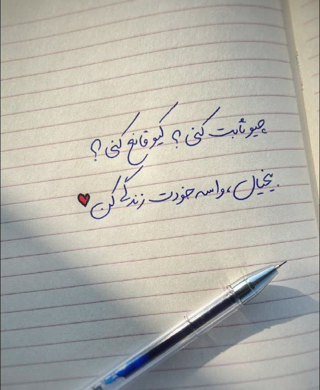 چیو ثابت کنی؟ کیو قانع کنی؟
بیخیال، واسه خودت زندگی کن